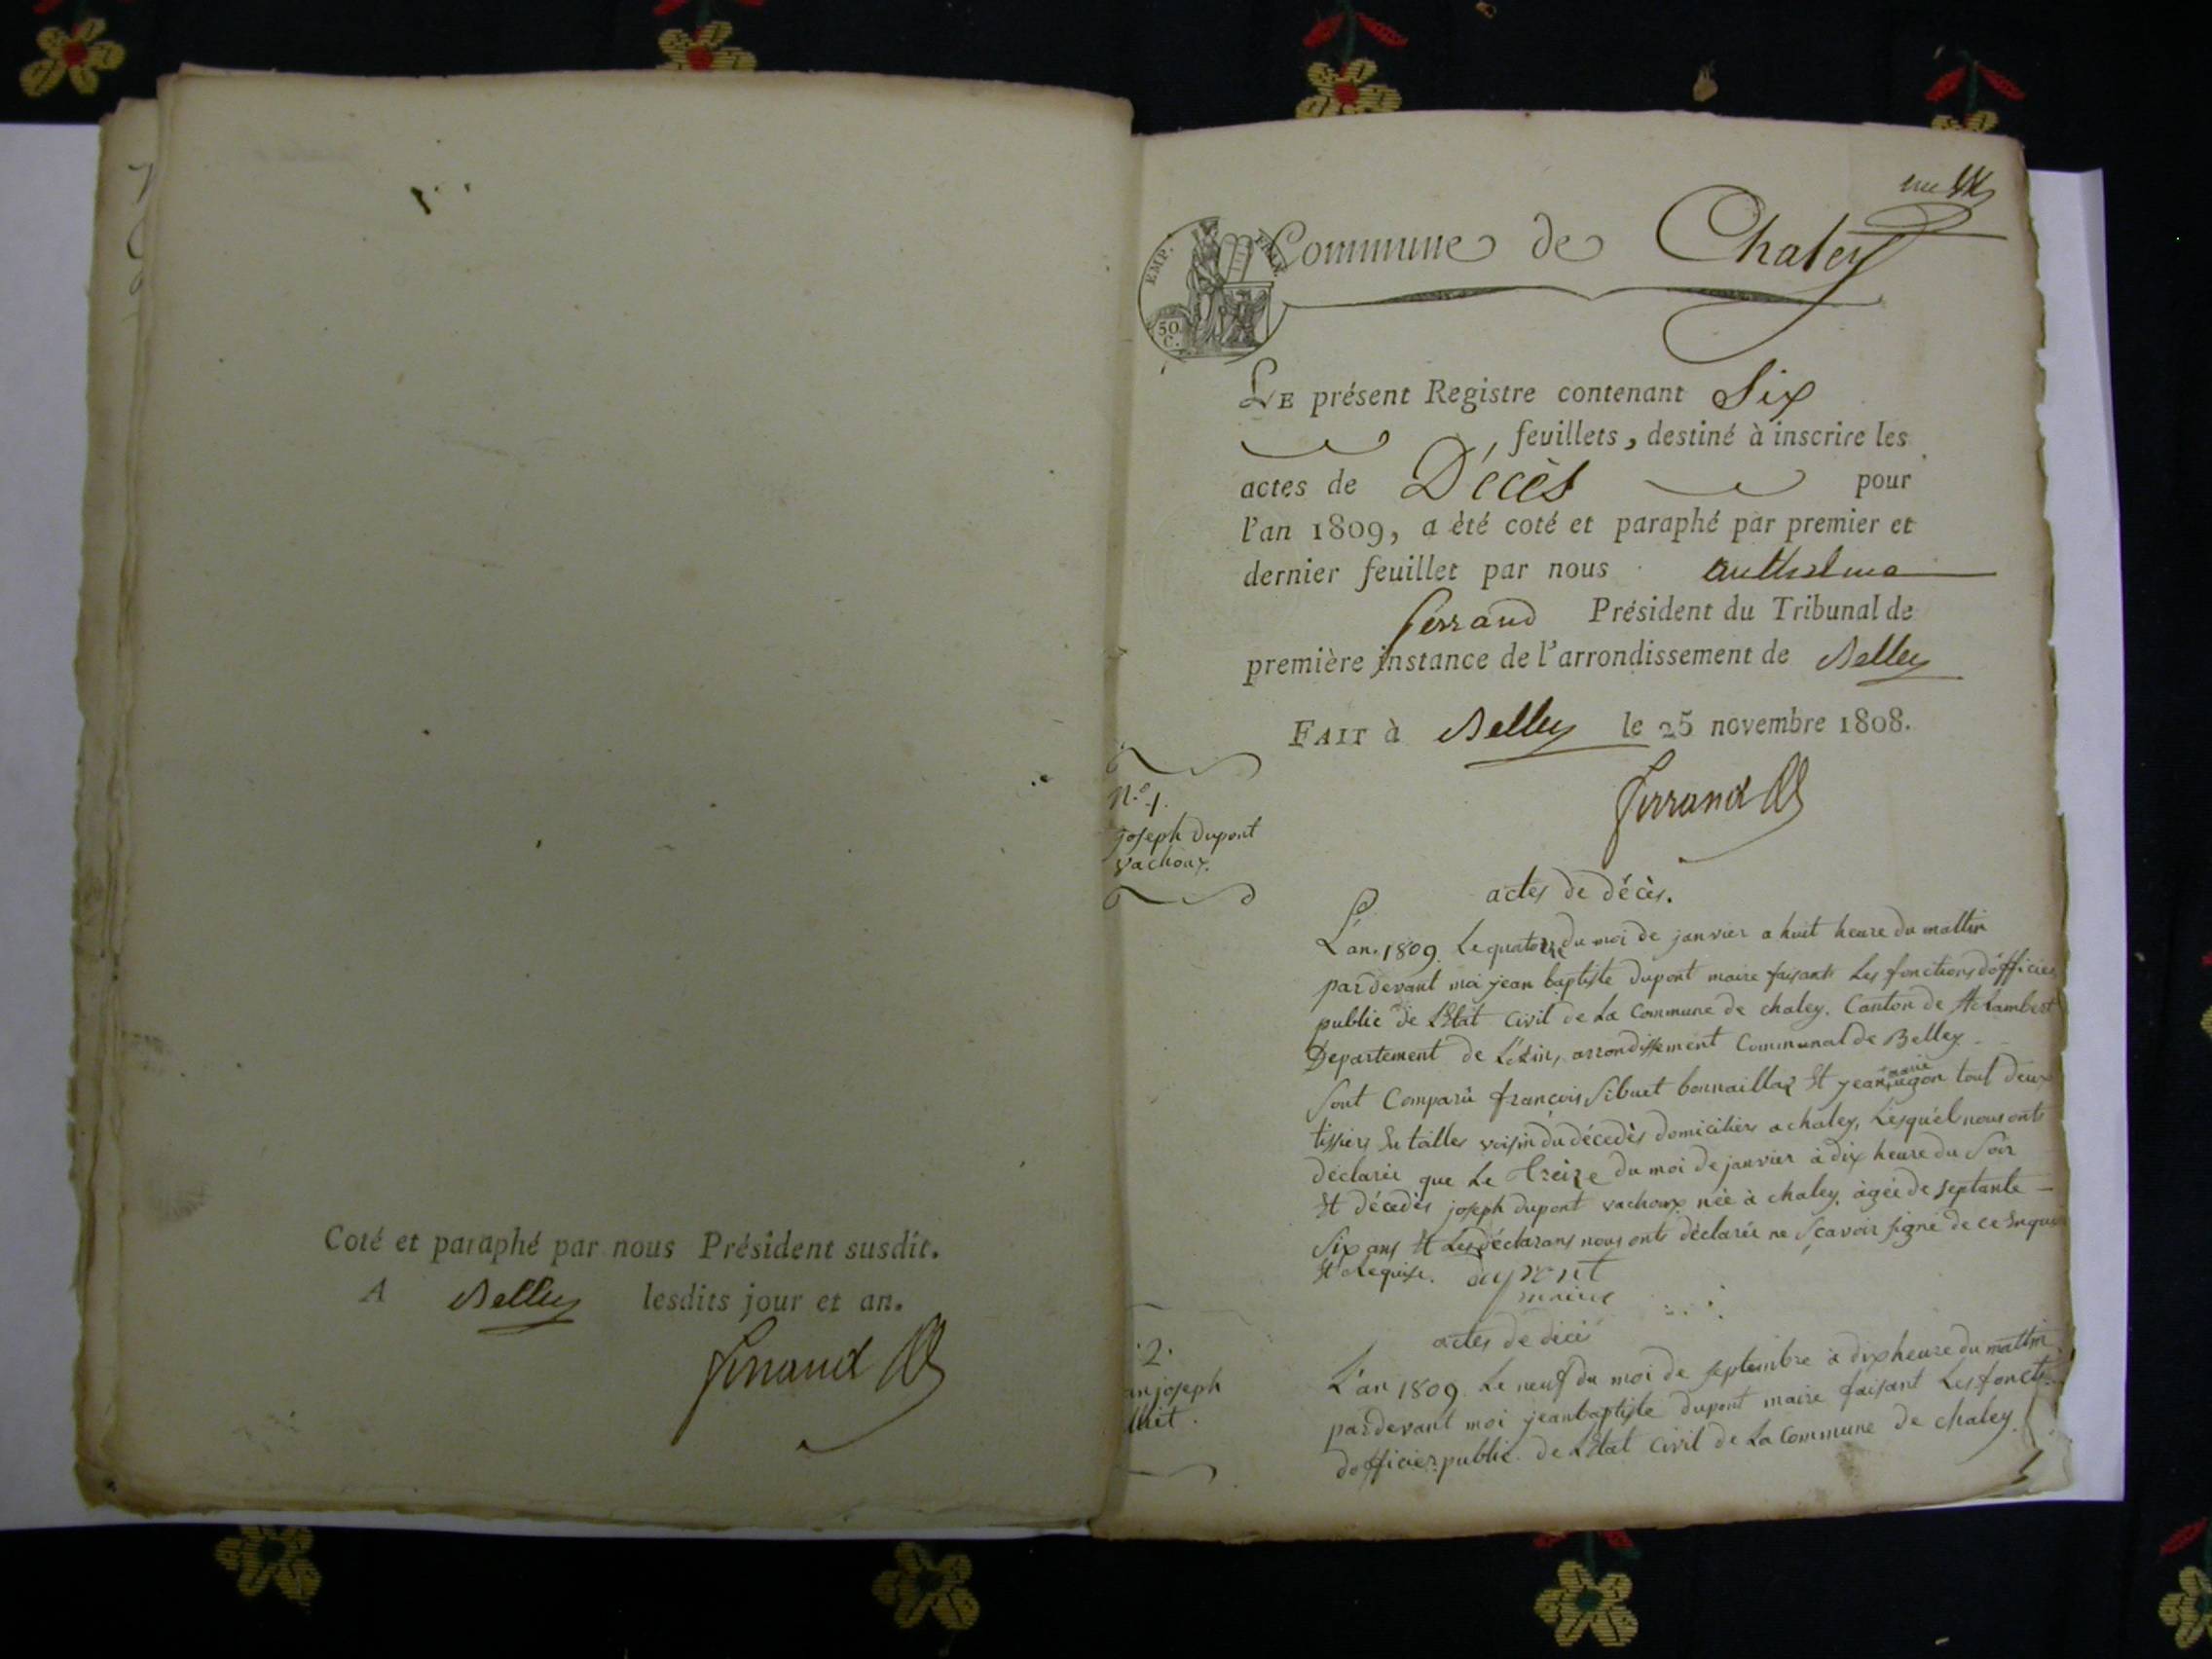 Coté et paraphé par nous Président susdit.
A Belley lesdits jour et an.
Ferrand
une
Commune de Chaley
EMP. FRAN.
50
C.
LE présent Registre contenant Six
feuillets, destiné à inscrire les
actes de Décès pour
l'an 1809, a été coté et paraphé par premier et
dernier feuillet par nous anthelme
ferrand Président du Tribunal de
première instance de l'arrondissement de Belley
FAIT à Belley le 25 novembre 1808.
Ferrand
N.º 1.
joseph Dupont
vachoux.
actes de décès.
L'an. 1809. Le quatorze du moi de janvier a huit heure du mattin
pardevant moi jean baptiste dupont maire faisants Les fonctions d'officier
public de L'Etat Civil de La Commune de chaley. Canton de St Rambert
Departement de L'Ain, arrondissement Communal de Belley
Sont Comparû françois Sibuet bonnaillaz Et jean marie ugon tout deux
tissiers En toilles voisin du décedès domiciliers a chaley, Lesquel nous onts
déclarés que Le treize du moi de janvier à dix heure du Soir
Et décedès joseph dupont vachoux née à chaley. âgée de septante
Six ans Et Les déclarans nous onts déclarés ne Sçavoir signé de ce Enquis
Et Requise. dupont
maire
actes de dicé
2.
an joseph
L'an 1809. Le neuf du moi de septembre a dix heure du mattin
pardevant moi jean baptiste dupont maire faisant Les foncti
dofficier public de L'Etat Civil de La Commune de chaley